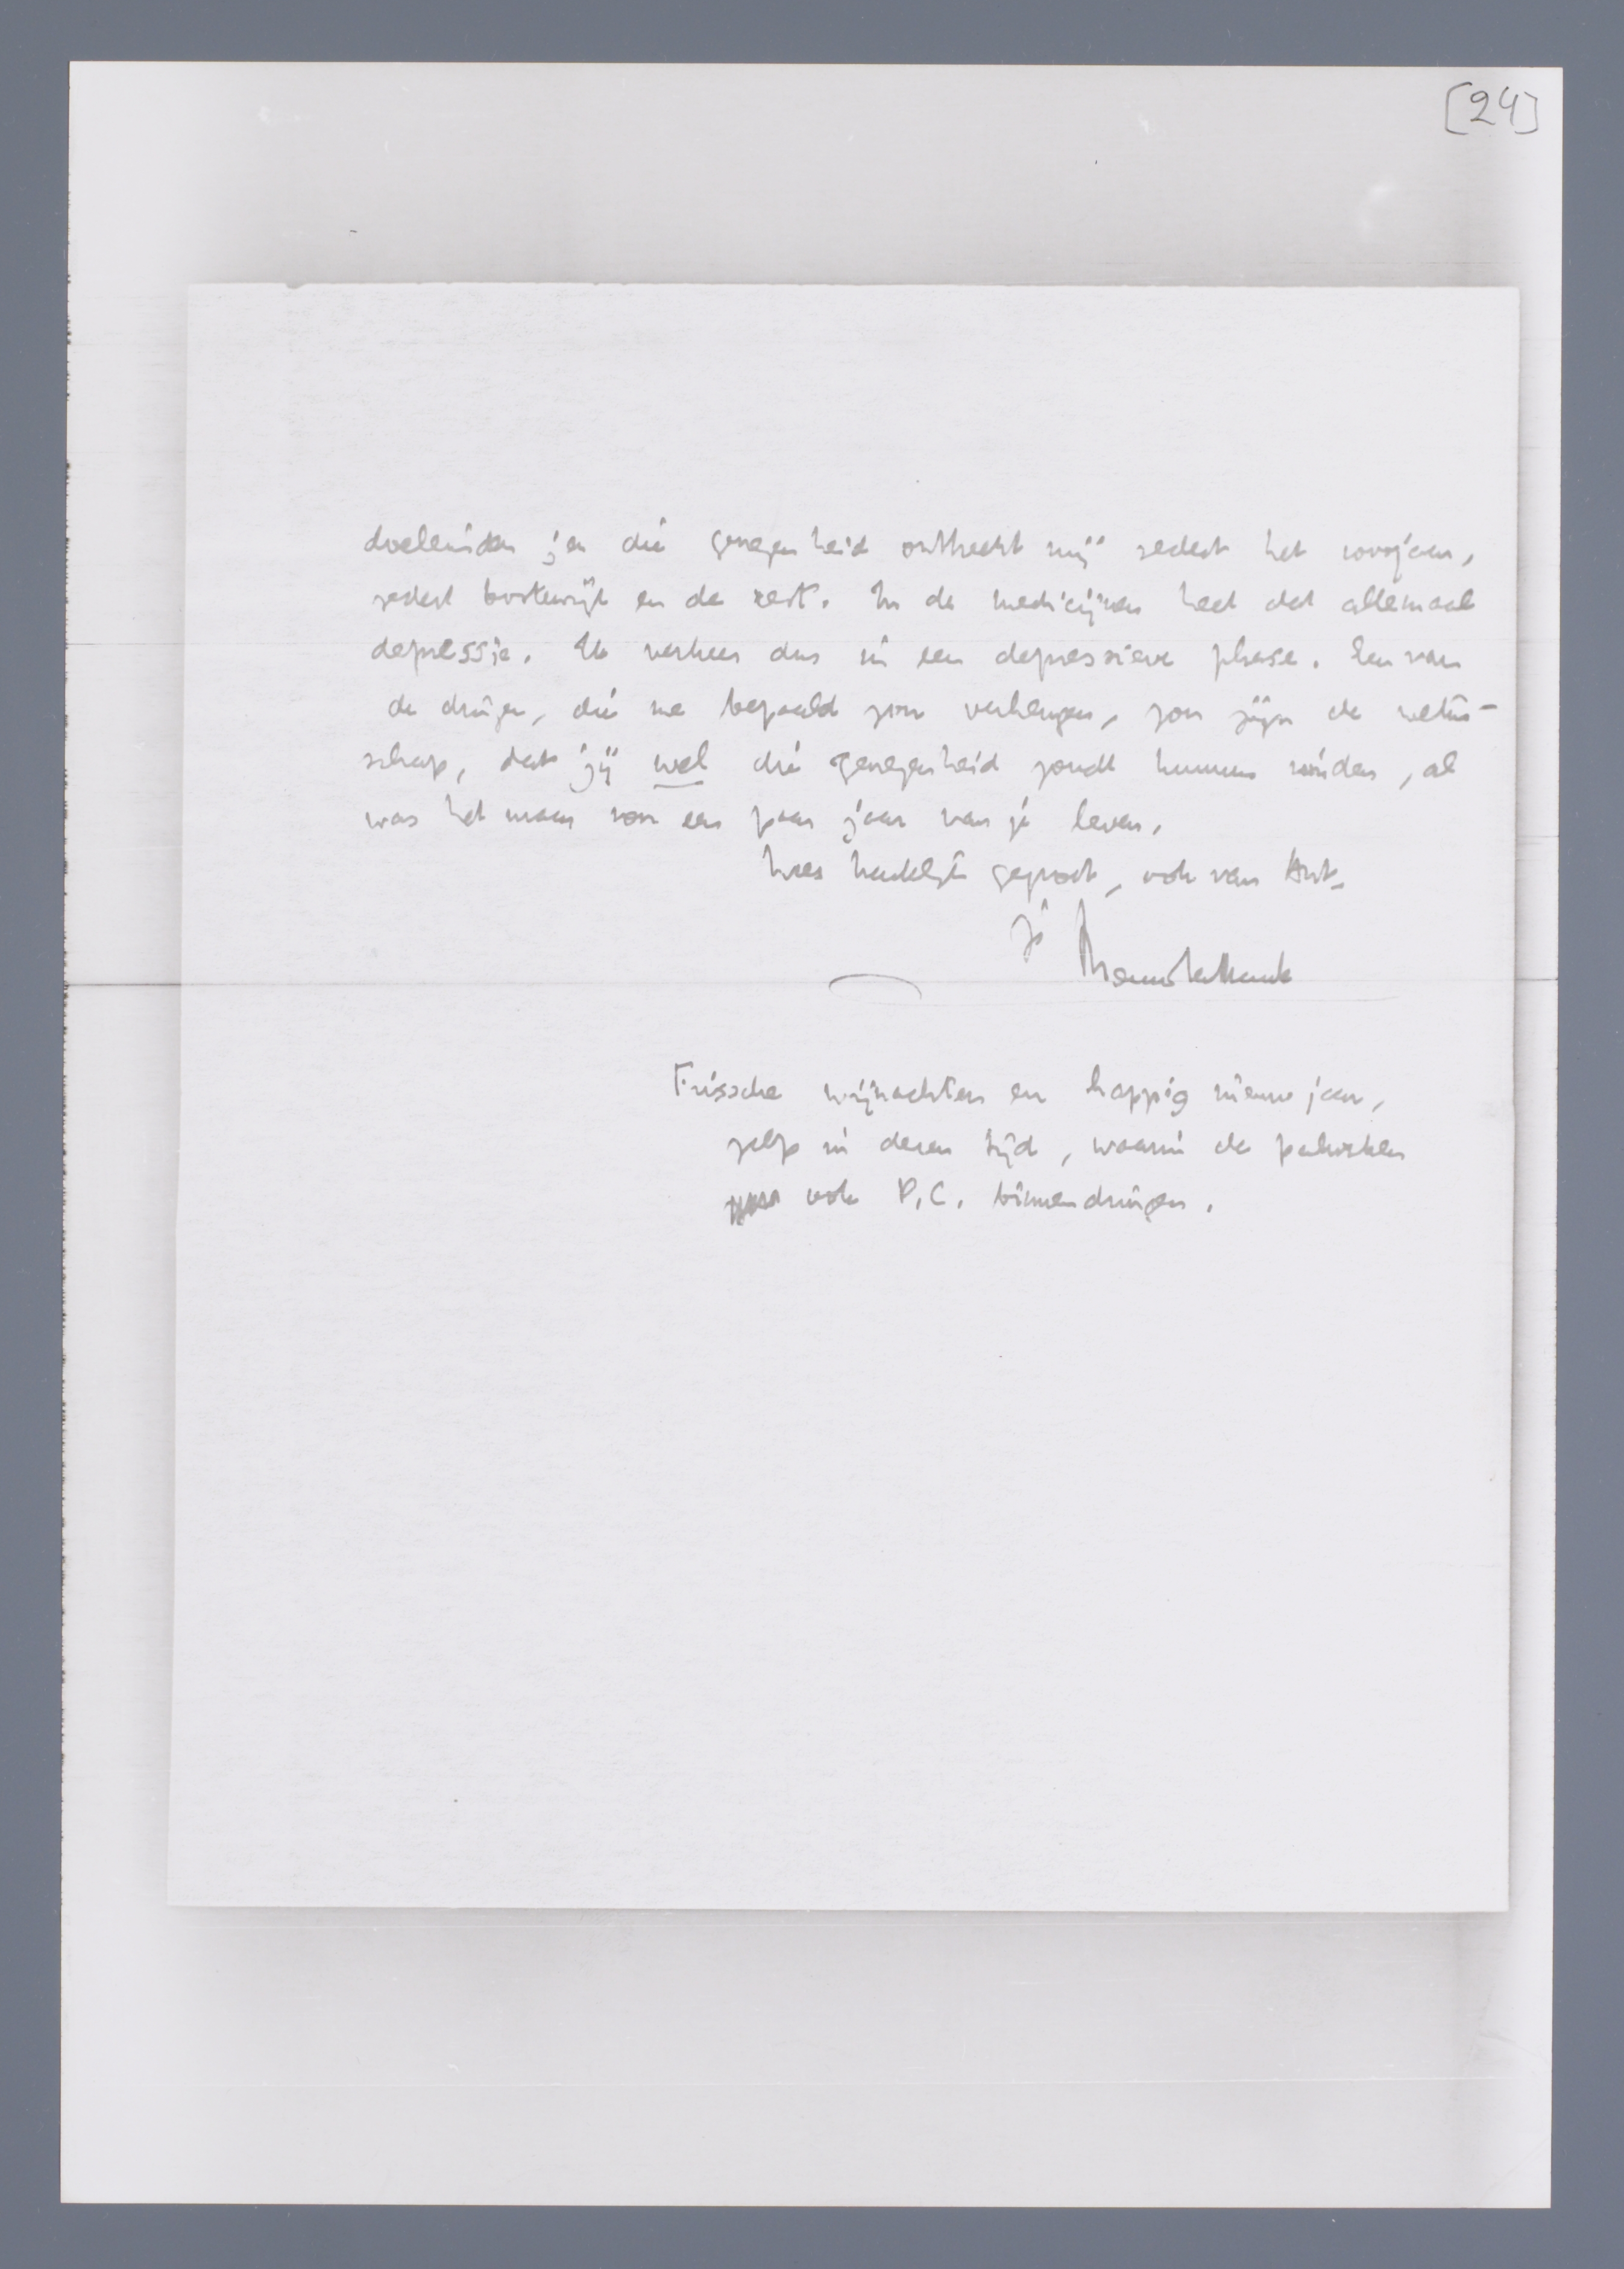 [24]
doeleinden; en die genegenheid ontbreekt mij sedert het voorjaar,
sedert en de rest. In de medicijnen heet dat allemaal
depressie. Ik verkeer dus in een depressieve phase. Een van
de dingen, die me bepaald zou verheugen, zou zijn de weten-
schap, dat jij wel die genegenheid zoudt kunnen vinden, al
was het maar voor een paar jaar van je leven.
Wees hartelijk gegroet, ook van Ant.
Je
Frissche wijnachten en happig nieuwjaar,
zelfs in dezen tijd, waarin de
ook P.C. binnendringen.